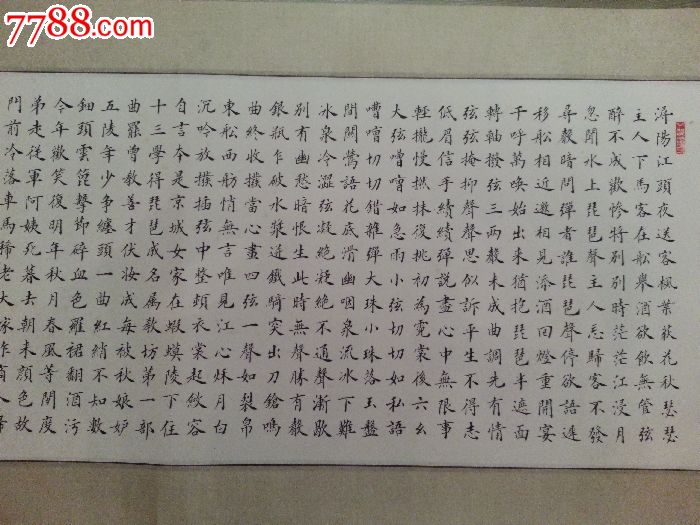 7788.com
潯陽江頭夜送客楓葉荻花秋瑟瑟
主人下馬客在船舉酒欲飲無管弦
醉不成歡慘將別別時茫茫江浸月
忽聞水上琵琶聲主人忘歸客不發
尋聲暗問彈者誰琵琶聲停欲語遲
移船相近邀相見添酒回燈重開宴
千呼萬喚始出來猶抱琵琶半遮面
轉軸撥弦三兩聲未成曲調先有情
弦弦掩抑聲聲思似訴平生不得志
低眉信手續續彈說盡心中無限事
輕攏慢撚抹復挑初為霓裳後六幺
大弦嘈嘈如急雨小弦切切如私語
嘈嘈切切錯雜彈大珠小珠落玉盤
間關鶯語花底滑幽咽泉流冰下難
水泉冷澀弦凝絕凝絕不通聲漸歇
別有幽愁暗恨生此時無聲勝有聲
銀瓶乍破水漿迸鐵騎突出刀槍鳴
曲終收撥當心畫四弦一聲如裂帛
東船西舫悄無言唯見江心秋月白
沉吟放撥插弦中整頓衣裳起斂容
自言本是京城女家在蝦蟆陵下住
十三學得琵琶成名屬教坊第一部
曲罷曾教善才伏妝成每被秋娘妒
五陵年少爭纏頭一曲紅綃不知數
鈿頭雲篦擊節碎血色羅裙翻酒污
今年歡笑復明年秋月春風等閒度
弟走從軍阿姨死暮去朝來顏色故
門前冷落車馬稀老大嫁作商人婦